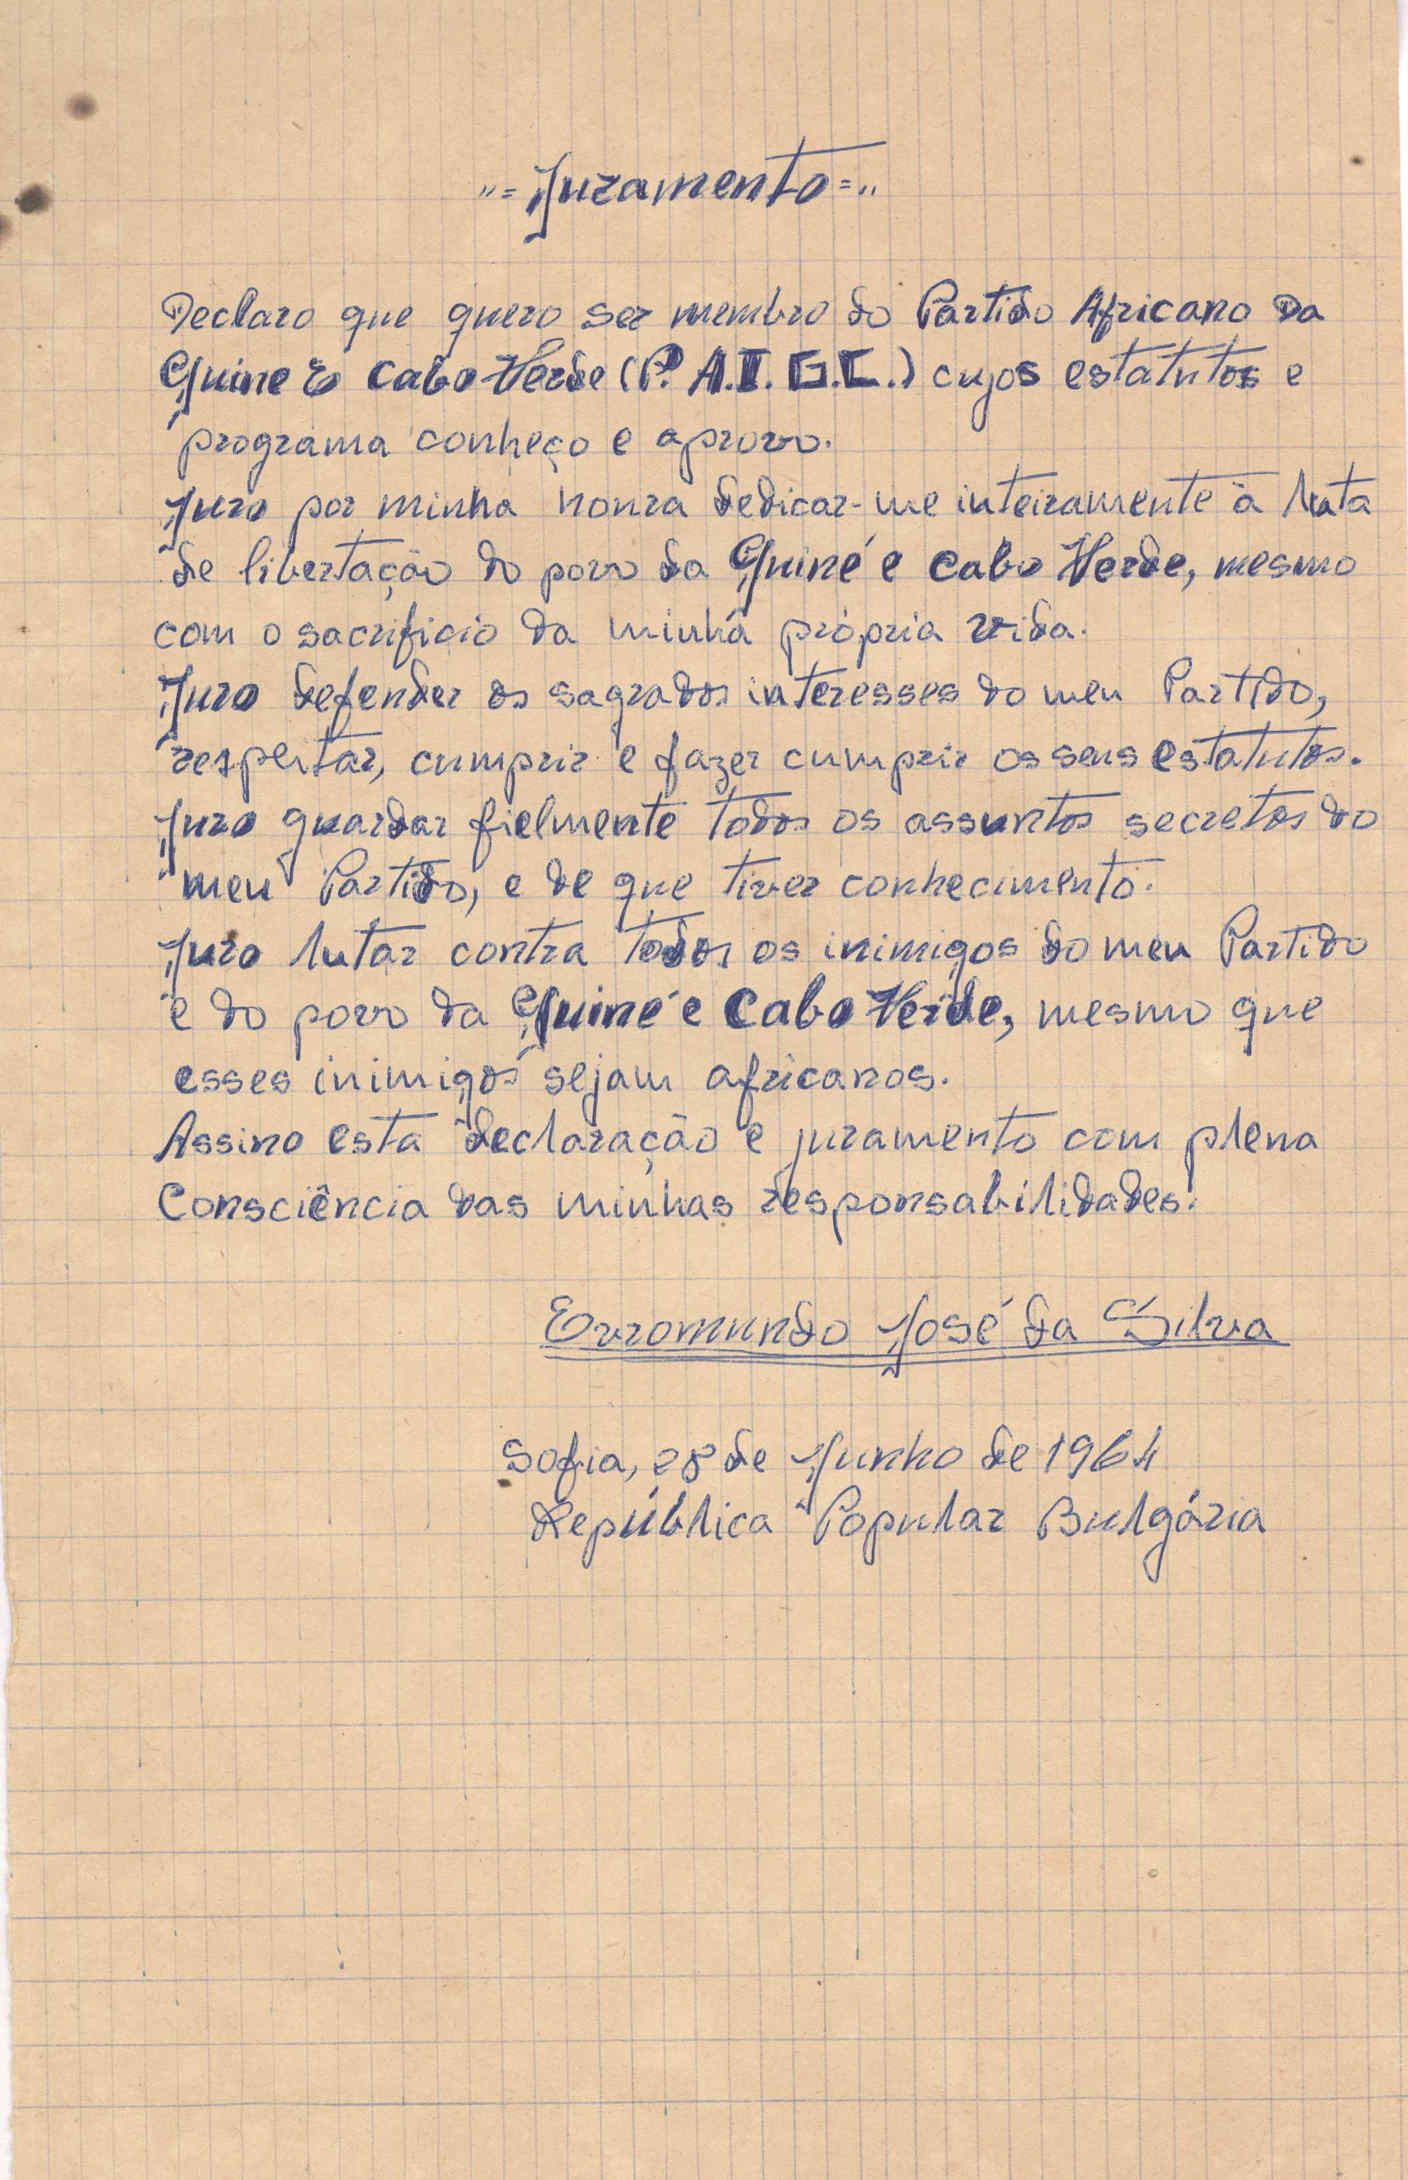 "= Juramento ="
Declaro que quero ser membro do Partido Africano Da
Guine E Cabo Verde (P.A.I.G.C.) cujos estatutos e
programa conheço e aprovo.
Juro por minha honra dedicar-me inteiramente à luta
de libertação do povo da Guiné e Cabo Verde, mesmo
com o sacrificio da minha própria vida.
Juro defender os sagrados interesses do meu Partido,
respeitar, cumprir e fazer cumprir os seus estatutos.
Juro guardar fielmente todos os assuntos secretos do
meu Partido, e de que tiver conhecimento.
Juro lutar contra todos os inimigos do meu Partido
e do povo da Guiné e Cabo Verde, mesmo que
esses inimigos sejam africanos.
Assino esta declaração e juramento com plena
Consciência das minhas responsabilidades.
Evromundo José da Silva
Sofia, 28 de Junho de 1964
República Popular Bulgária